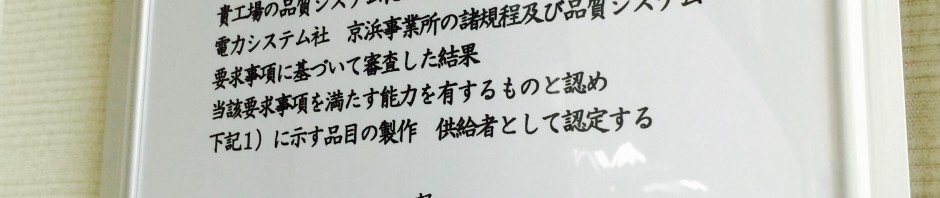 貴工場の品質システムに
電力システム社　京浜事業所の諸規程及び品質システム
要求事項に基づいて審査した結果
当該要求事項を満たす能力を有するものと認め
下記1）に示す品目の製作　供給者として認定する